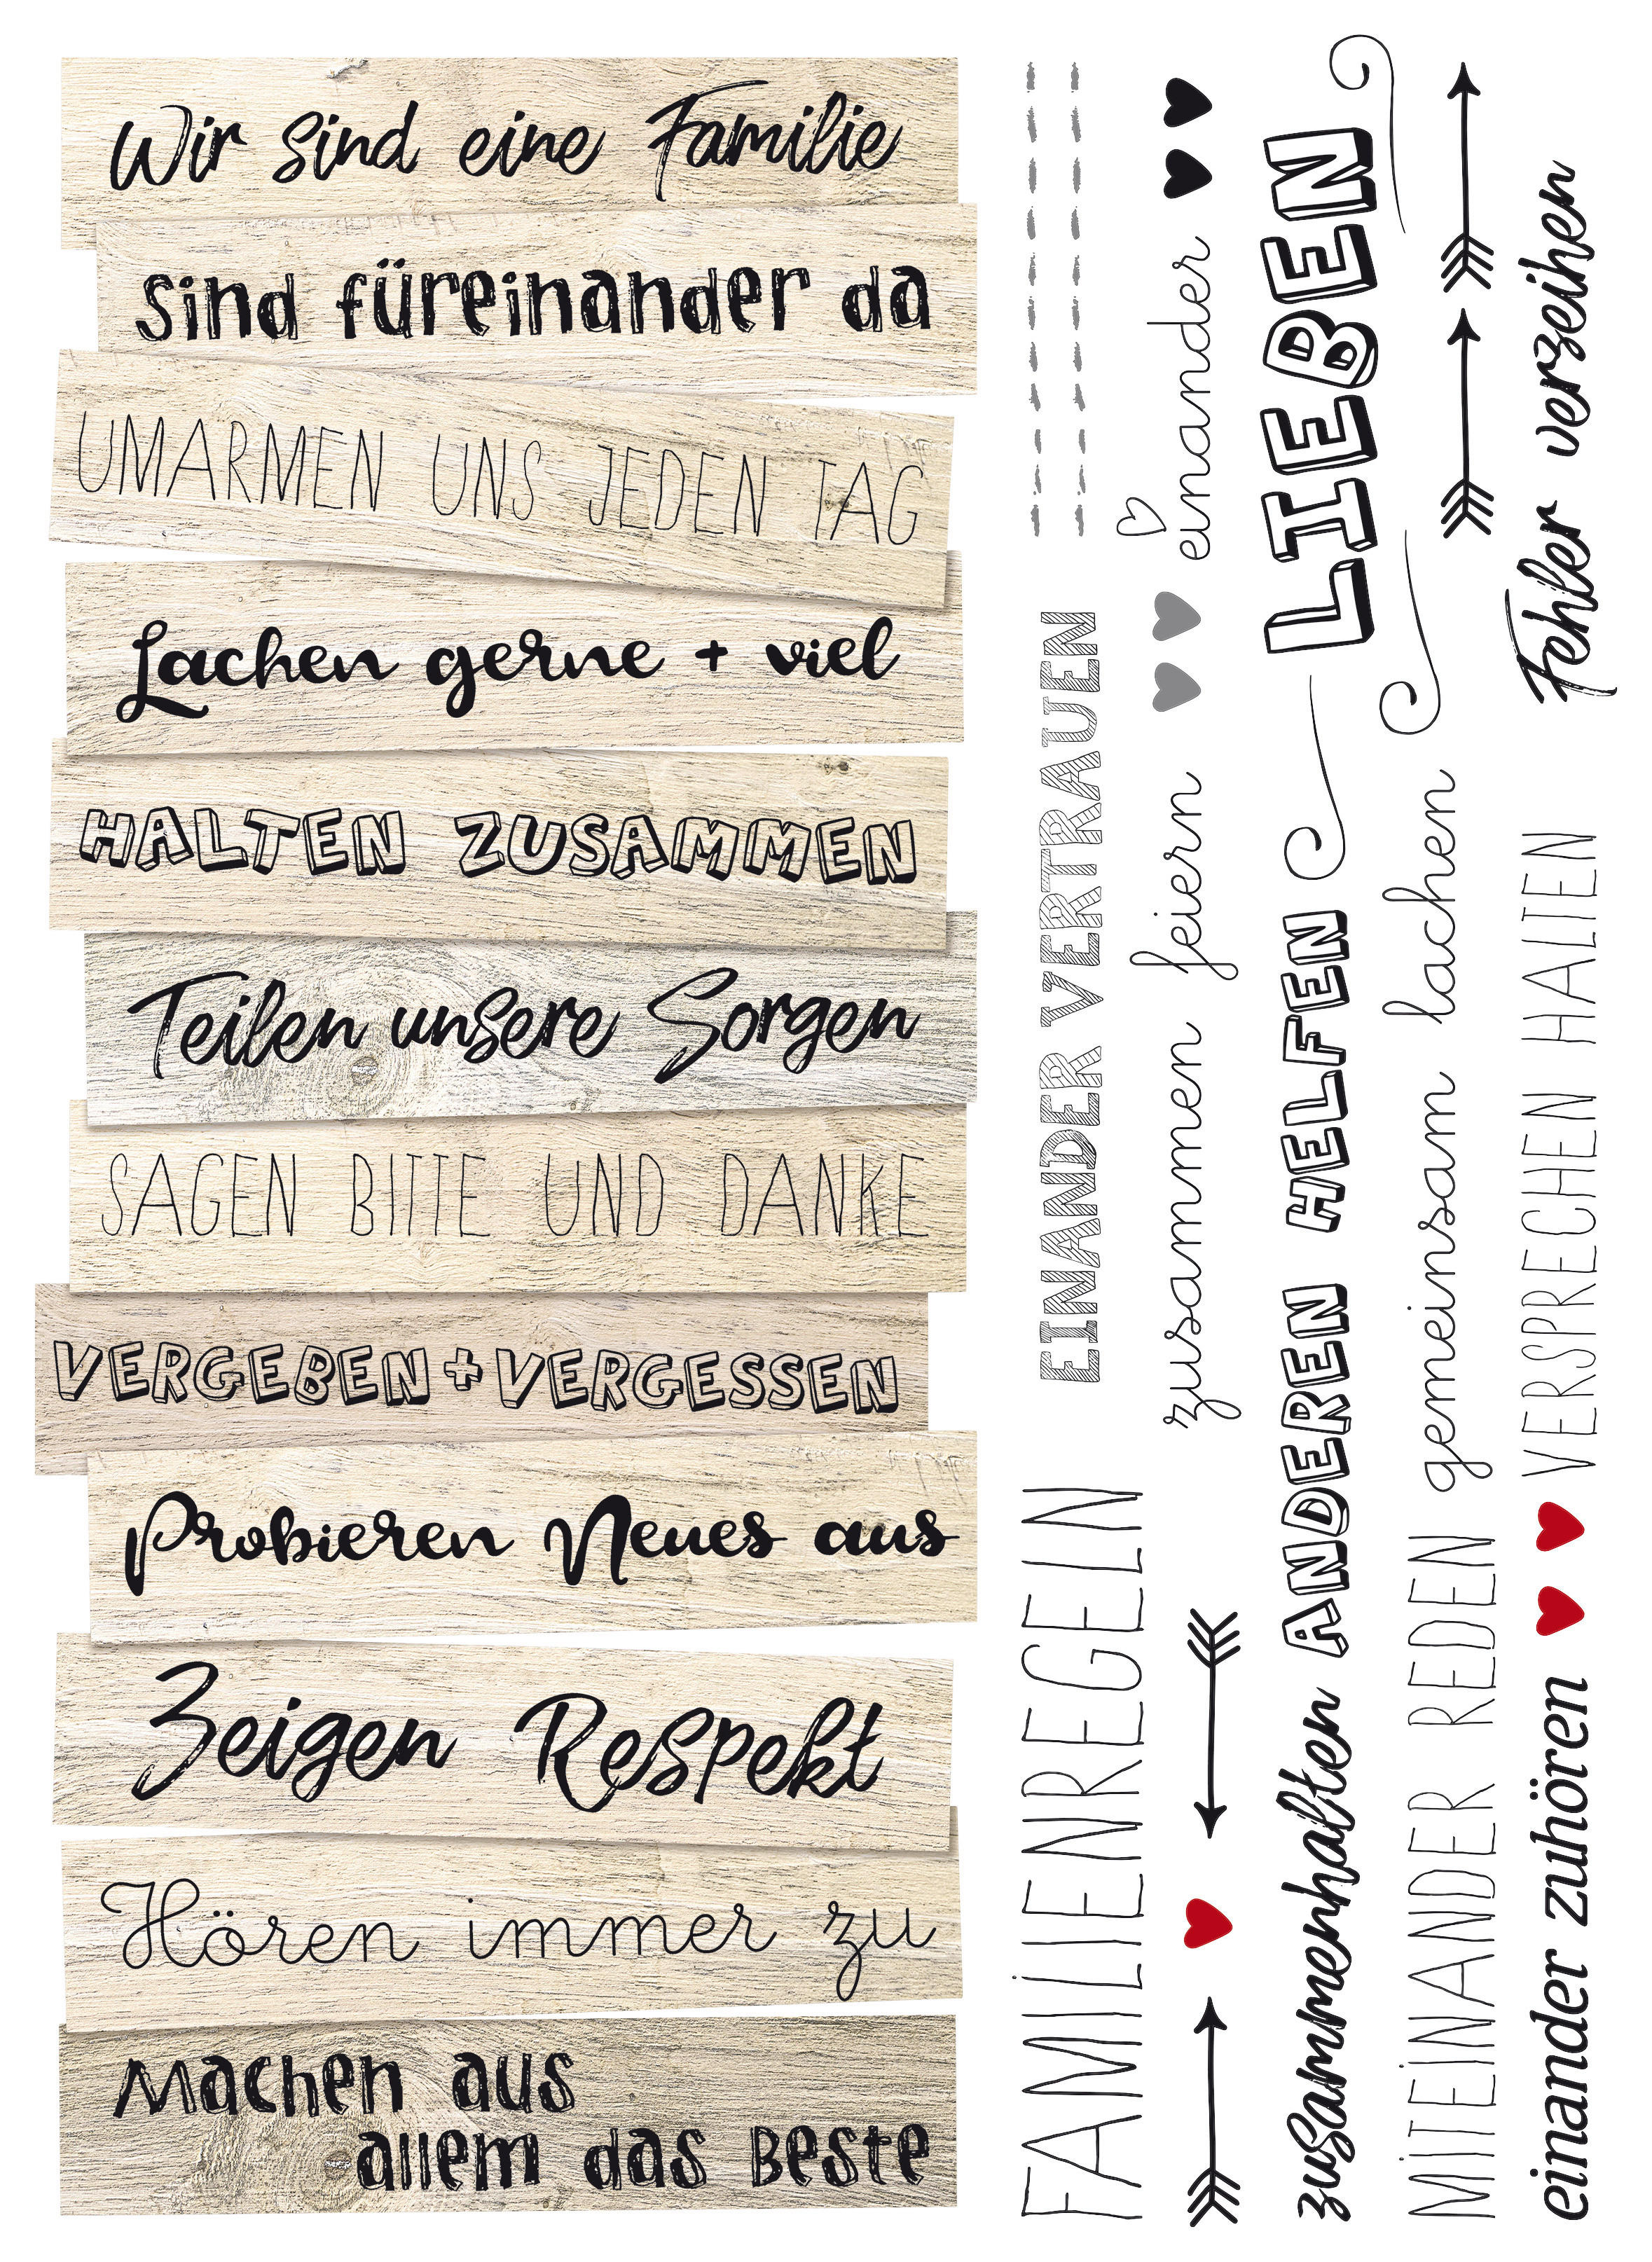 Wir sind eine Familie
sind füreinander da
UMARMEN UNS JEDEN TAG
Lachen gerne + viel
HALTEN ZUSAMMEN
Teilen unsere Sorgen
SAGEN BITTE UND DANKE
VERGEBEN + VERGESSEN
Probieren Neues aus
Zeigen Respekt
Hören immer zu
Machen aus
allem das Beste
FAMILIENREGELN
EINANDER VERTRAUEN
zusammen feiern
einander
LIEBEN
zusammenhalten
ANDEREN HELFEN
MITEINANDER REDEN
gemeinsam lachen
Fehler verzeihen
einander zuhören
VERSPRECHEN HALTEN